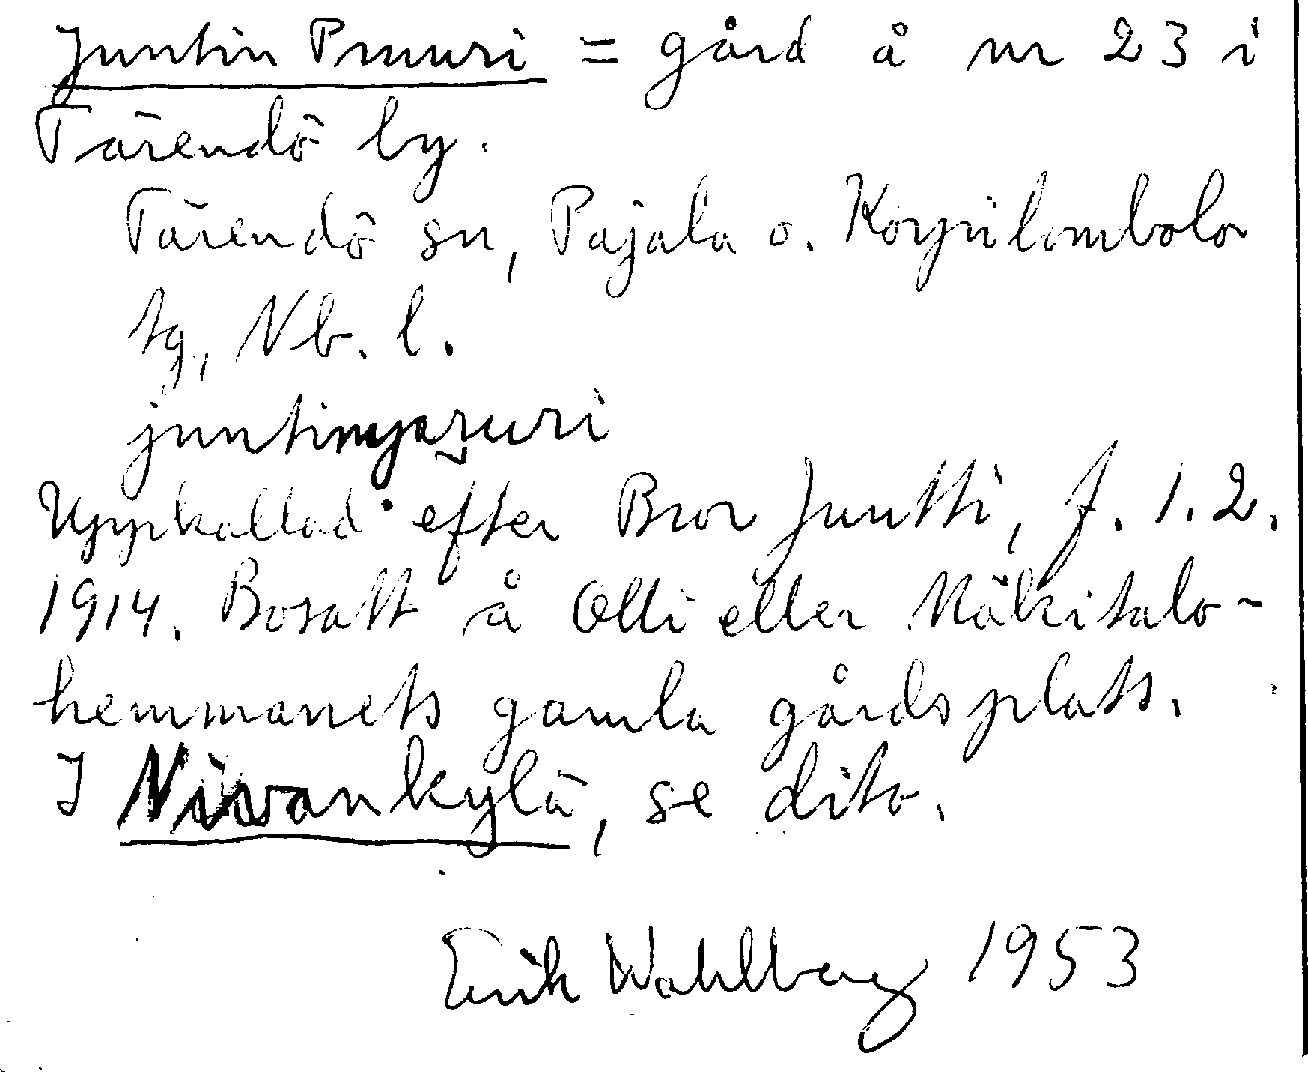 Juntin Pruuri = gård å nr 23 i
Tärendö by.
Tärendö sn, Pajala o. Korpilombolo
tg, Nb. l.
Uppkallad efter Bror Juntti, f. 1.2.
1914. Bosatt å Olli eller Mäkitalo-
hemmanets gamla gårdsplats.
I Niivankylä, se dito.
Erik Wahlberg 1953